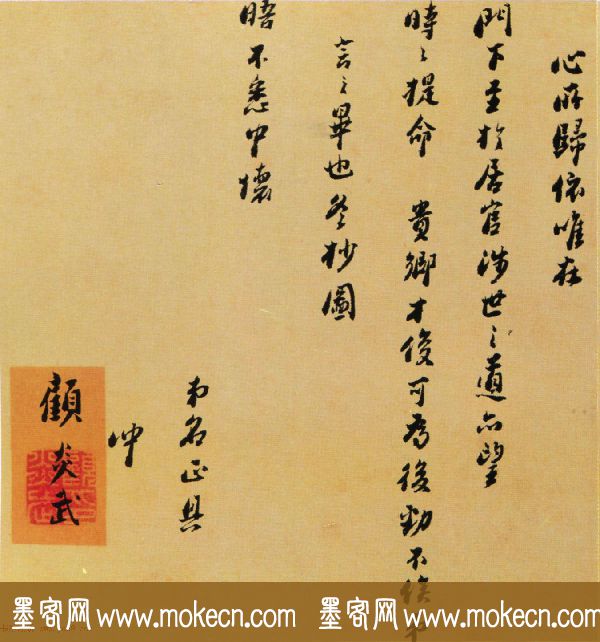 心所歸依唯在
門下至於居官涉世之道亦望
時〻提命 貴鄉才俊可為後勁不俟
言之畢也冬杪圖
晤不悉中懷
弟名正具
冲
顧炎武
墨客网 www.mokecn.com 墨客网 www.mokecn.com